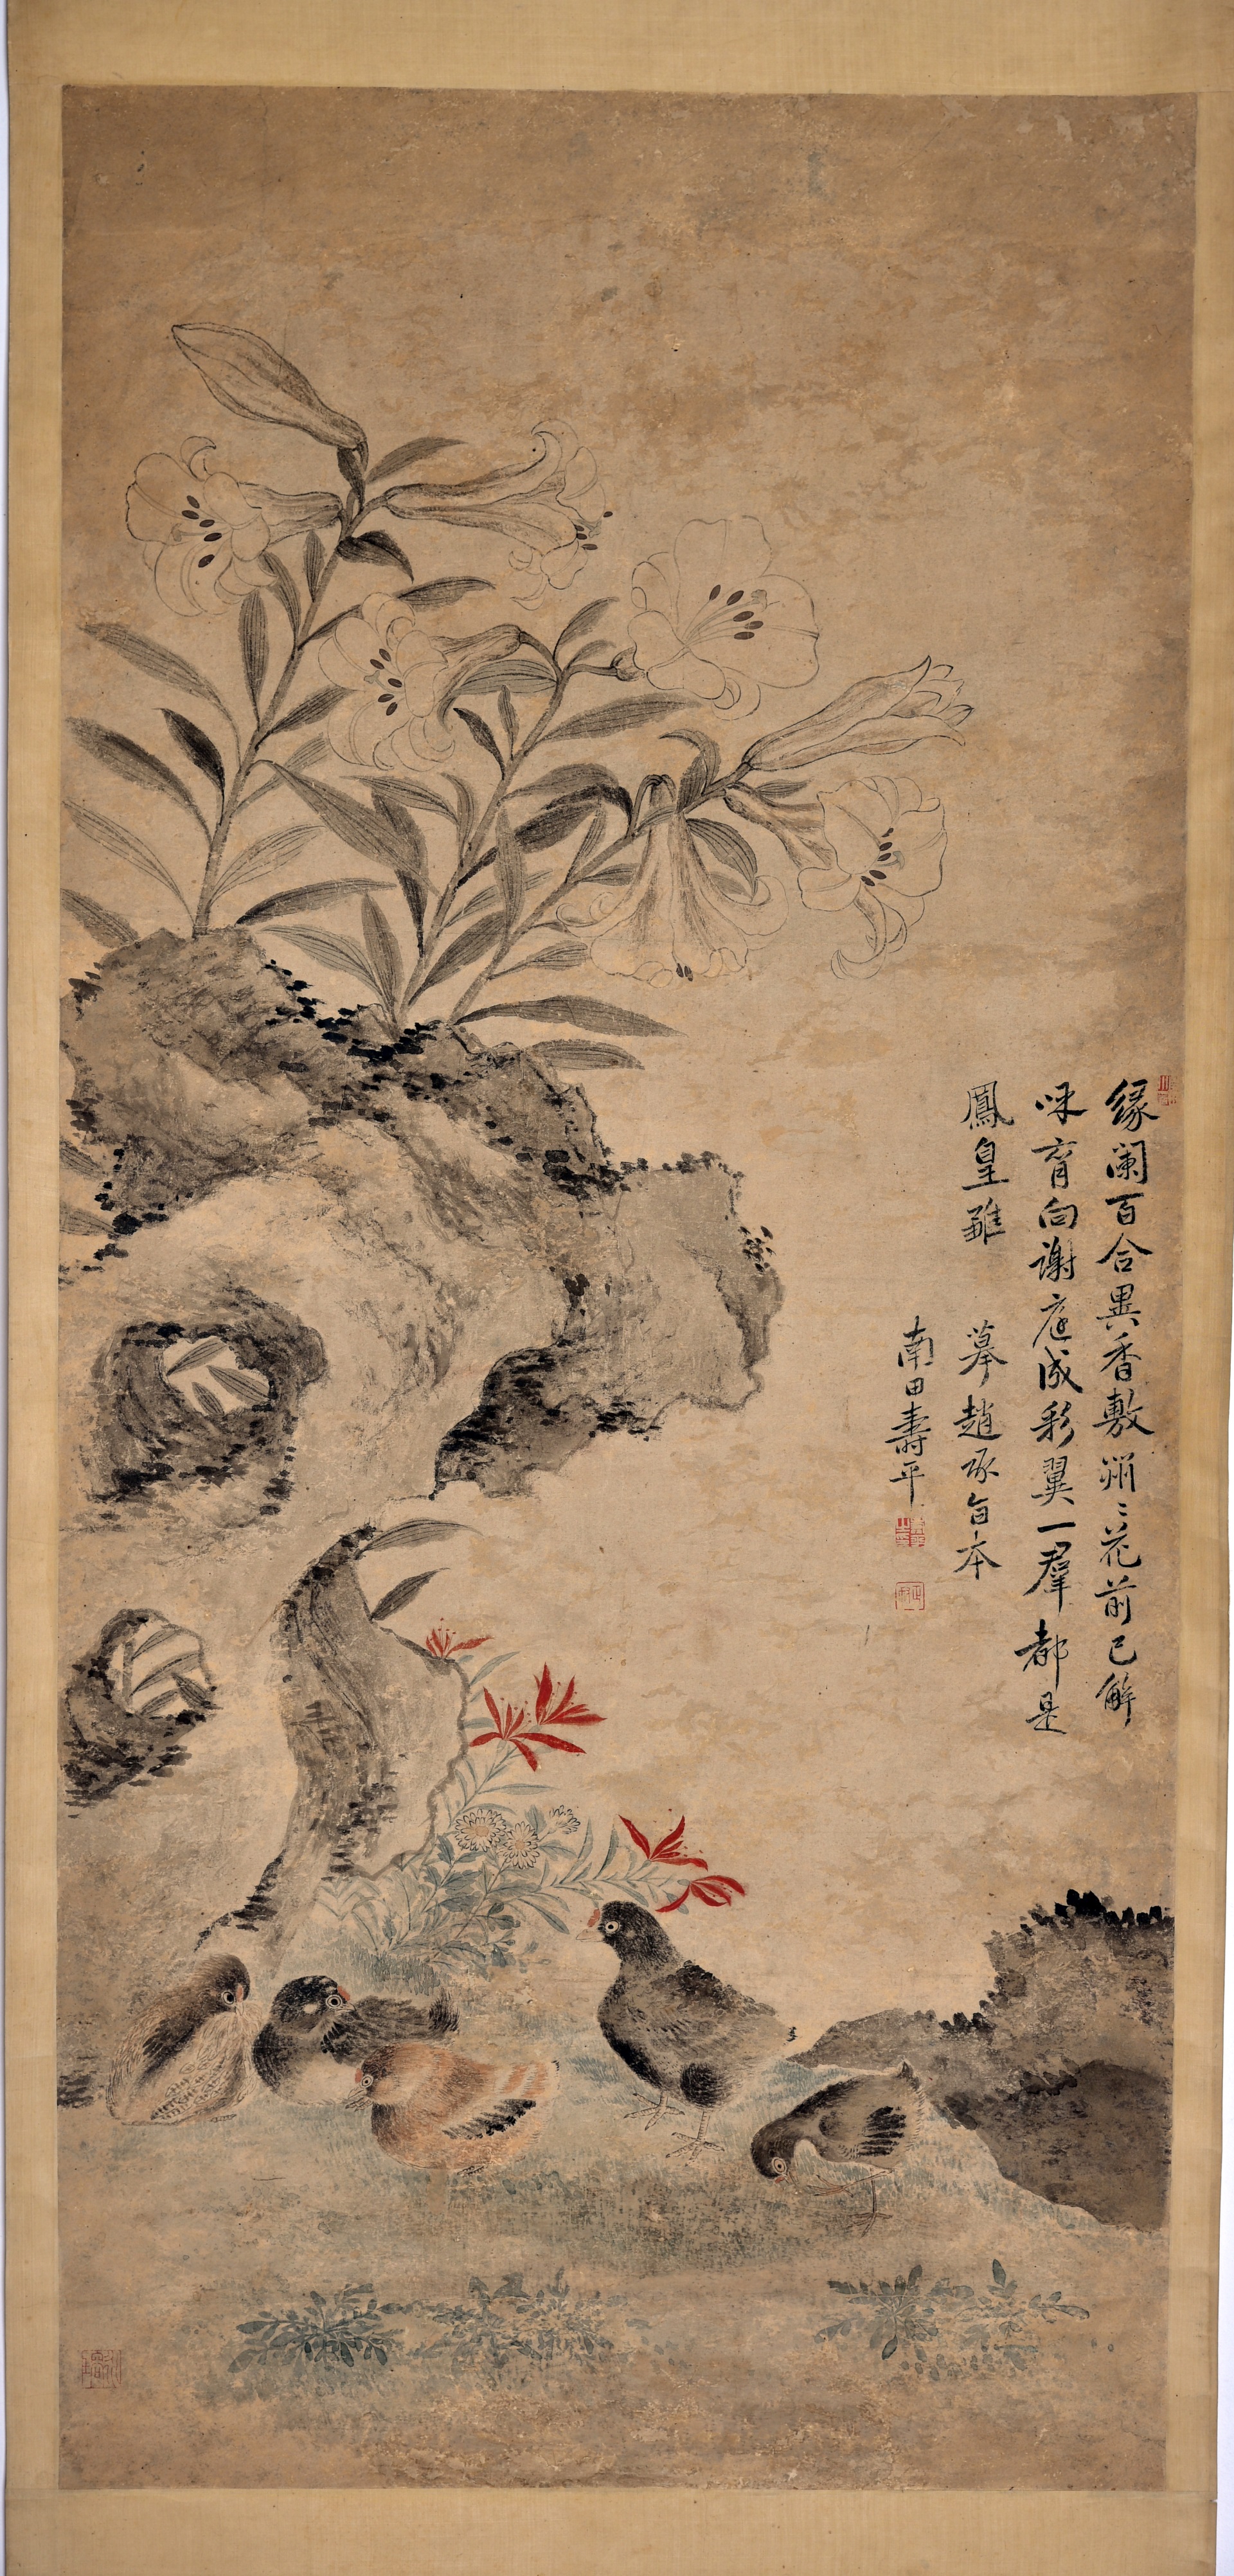 緣闌百合異香敷㴋〻花前已解
呼育向謝庭成彩翼一羣都是
鳳皇雛
摹趙承旨本
南田壽平